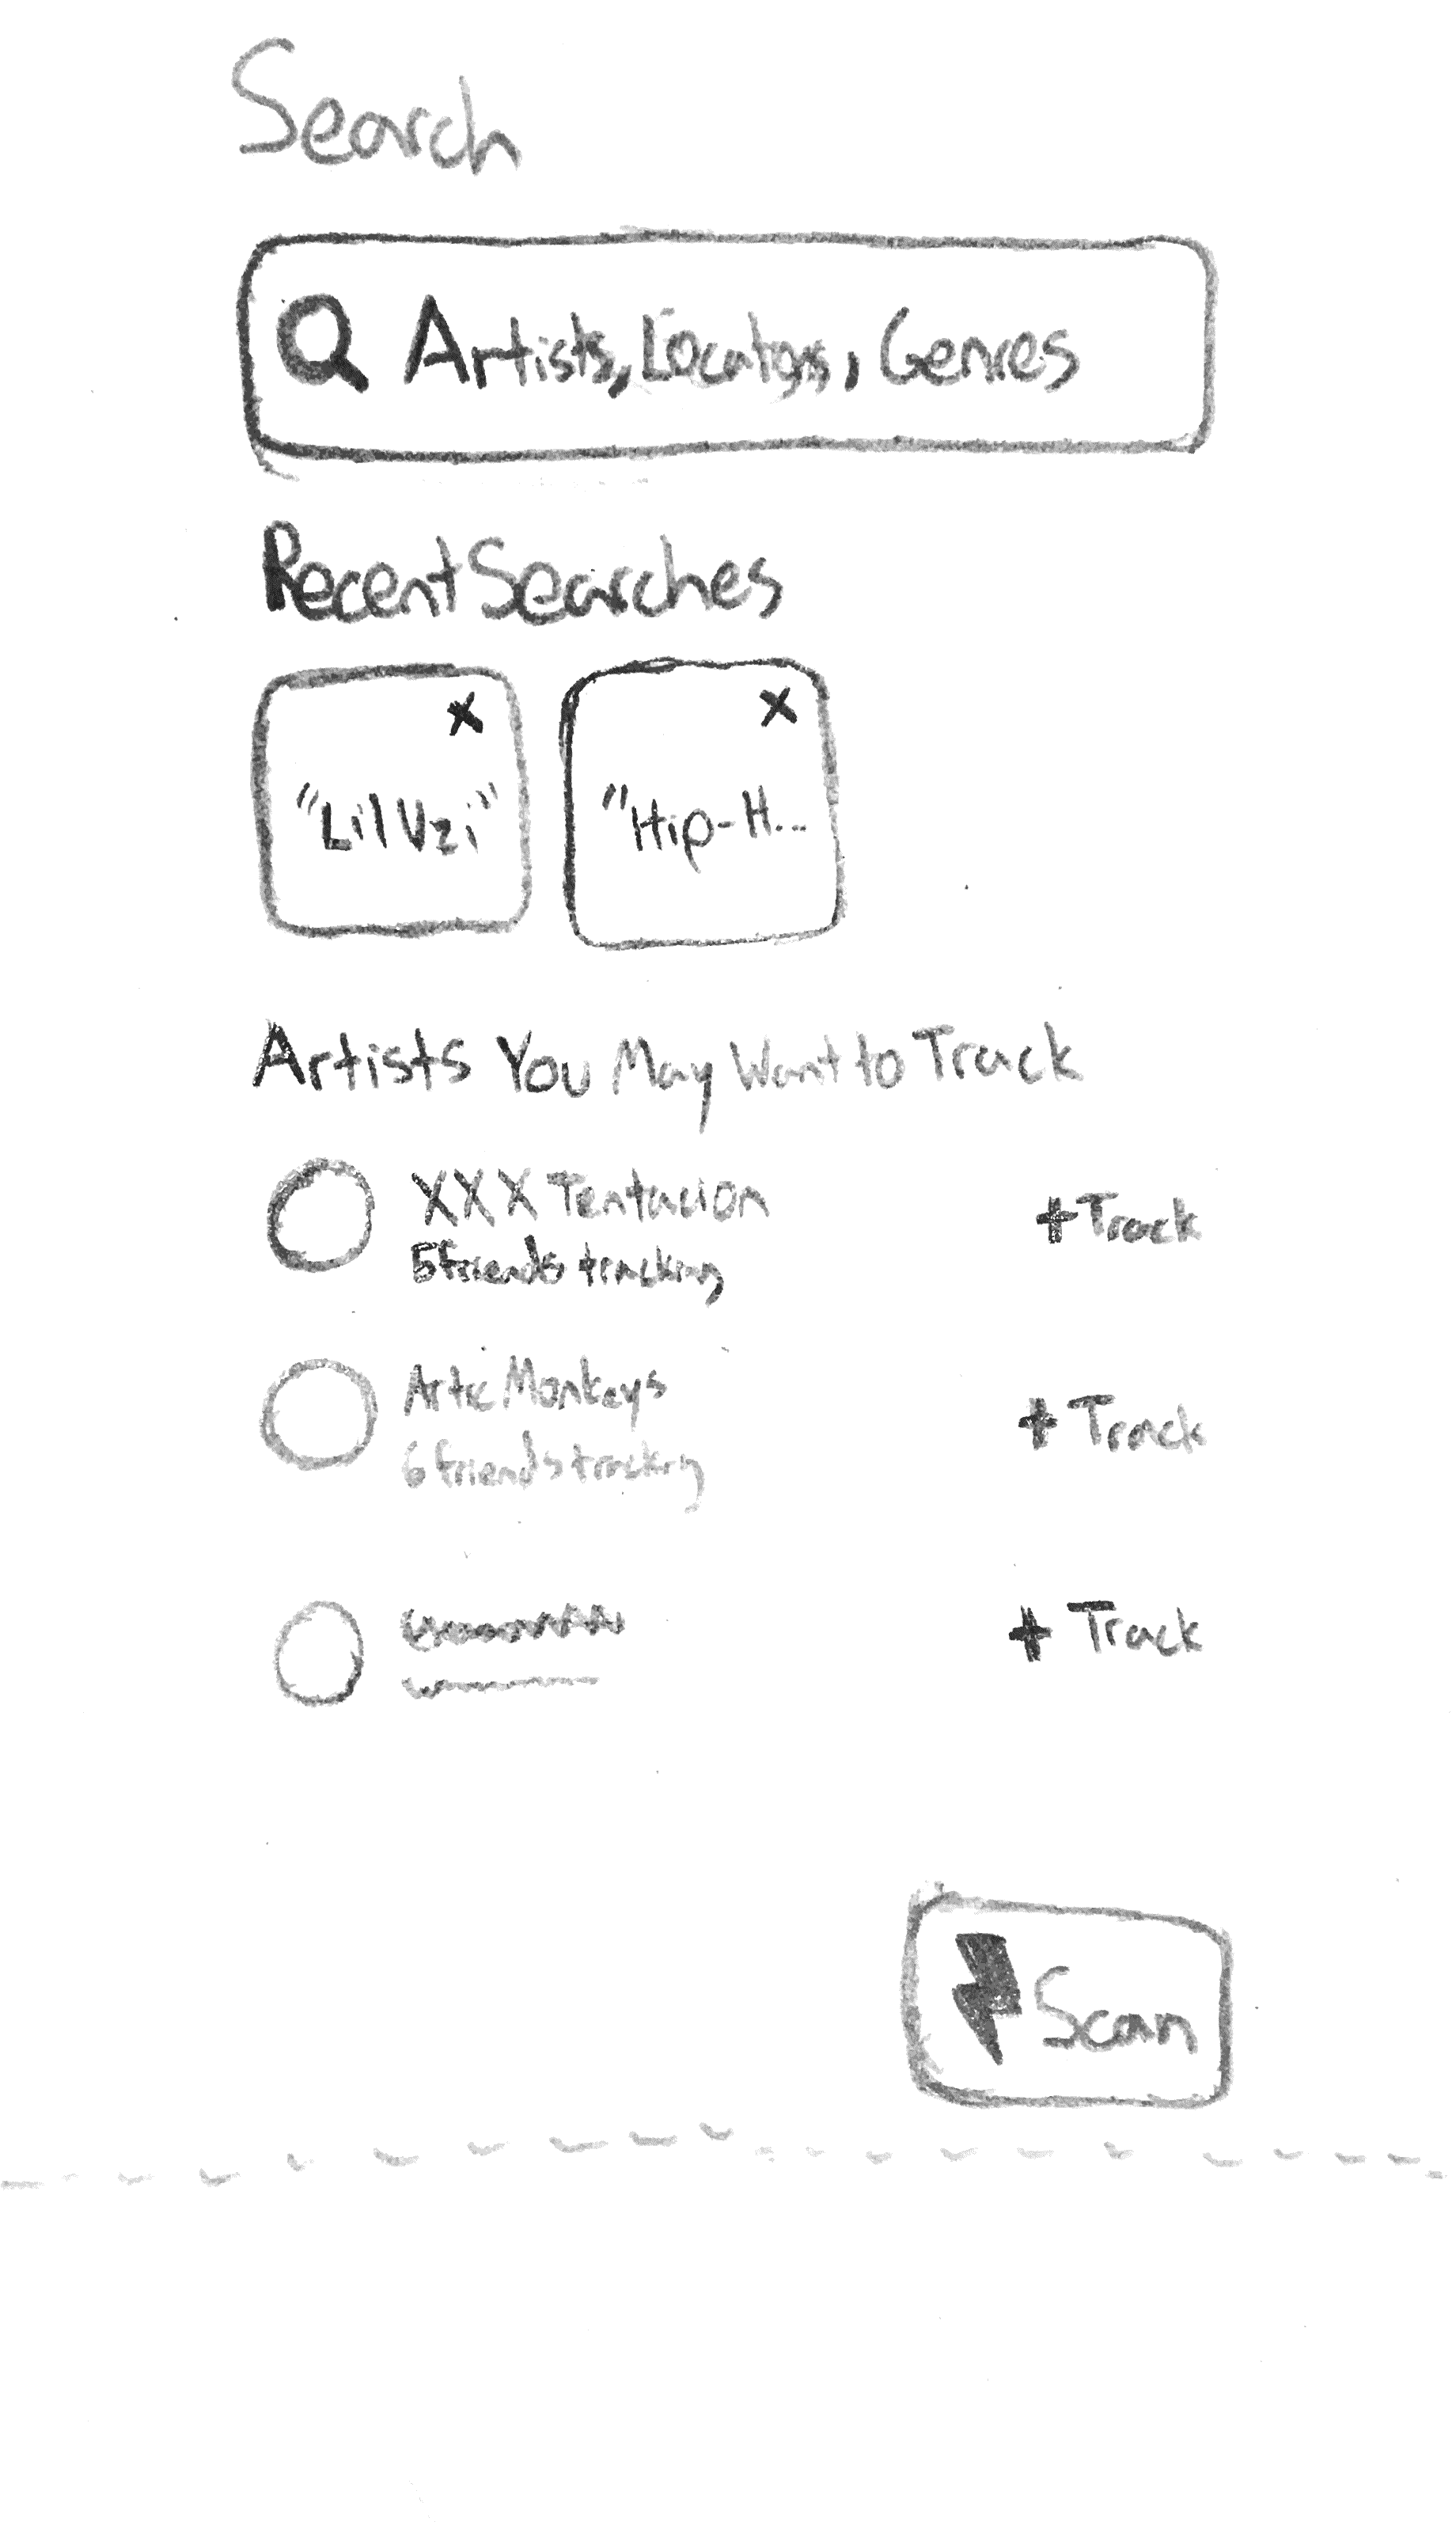 Search
Artists, Locations, Genres
Recent Searches
x
x
"Lil Uzi"
"Hip-H...
Artists You May Want to Track
XXX Tentacion
+ Track
5 friends tracking
Artic Monkeys
+ Track
6 friends tracking
+ Track
Scan